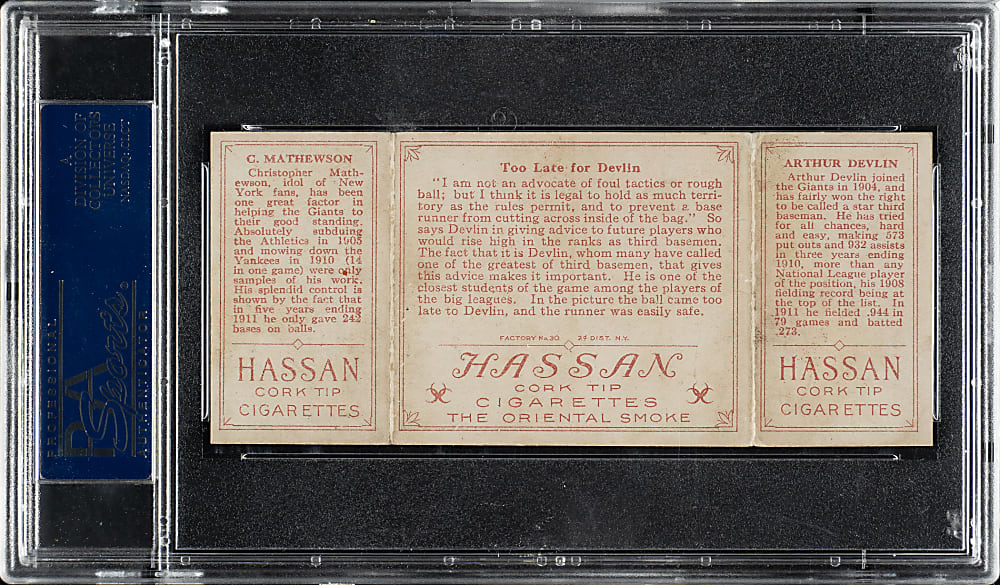 A
DIVISION OF
COLLECTORS
UNIVERSE
NASDAQ: CLCT
PROFESSIONAL
PSA
Sports
AUTHENTICATOR
C. MATHEWSON
Christopher Math-
ewson, idol of New
York fans, has been
one great factor in
helping the Giants to
their good standing.
Absolutely subduing
the Athletics in 1905
and mowing down the
Yankees in 1910 (14
in one game) were only
samples of his work.
His splendid control is
shown by the fact that
in five years ending
1911 he only gave 242
bases on balls.
HASSAN
CORK TIP
CIGARETTES
Too Late for Devlin
"I am not an advocate of foul tactics or rough
ball; but I think it is legal to hold as much terri-
tory as the rules permit, and to prevent a base
runner from cutting across inside of the bag." So
says Devlin in giving advice to future players who
would rise high in the ranks as third basemen.
The fact that it is Devlin, whom many have called
one of the greatest of third basemen, that gives
this advice makes it important. He is one of the
closest students of the game among the players of
the big leagues. In the picture the ball came too
late to Devlin, and the runner was easily safe.
FACTORY No 30 2d DIST. N.Y.
HASSAN
CORK TIP
CIGARETTES
THE ORIENTAL SMOKE
ARTHUR DEVLIN
Arthur Devlin joined
the Giants in 1904, and
has fairly won the right
to be called a star third
baseman. He has tried
for all chances, hard
and easy, making 573
put outs and 932 assists
in three years ending
1910, more than any
National League player
of the position, his 1908
fielding record being at
the top of the list. In
1911 he fielded .944 in
79 games and batted
.273.
HASSAN
CORK TIP
CIGARETTES